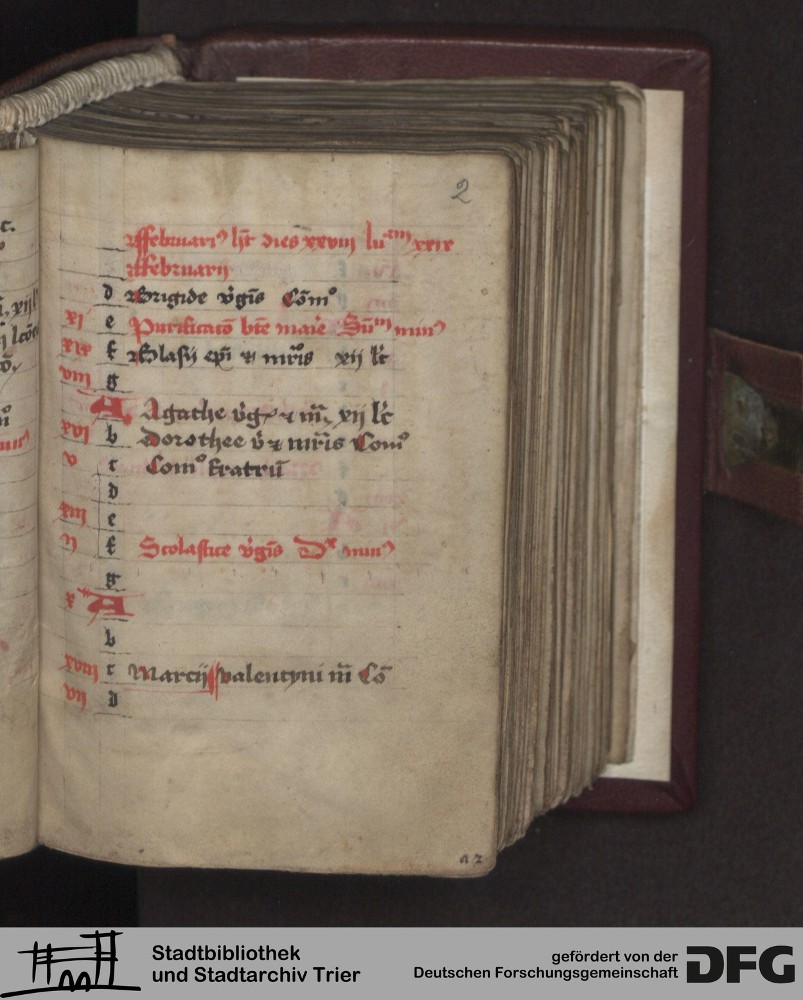 2
Februari⁹ ht̄ dies xxviij luᵃᵐ xxix
Februarij
d Brigide v̄gīs Com̄º
xj e Purificatō bt̄e marie Sūᵐ min⁹
xix f Blasij ep̄i ⁊ mr̄is xij lc̄
viij g
A Agathe v̄g ⁊ m̄ xij lc̄
xvj b Dorothee v̄ ⁊ mr̄is Comº
v c Comº fratrū
d
xiij e
ij f Scolastice v̄gīs Dˣ min⁹
g
x A
b
xviij c Marcij valentyni m̄ Cō
vij d
a 2
Stadtbibliothek
und Stadtarchiv Trier
gefördert von der
Deutschen Forschungsgemeinschaft
DFG